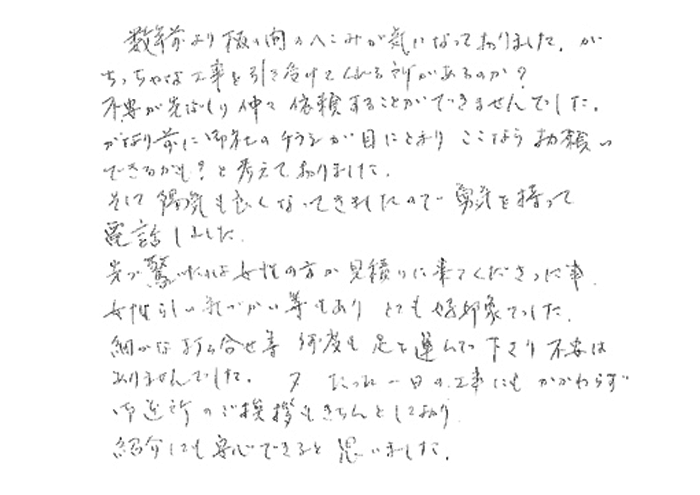 数年前より板の間のへこみが気になっておりました。が
ちっちゃな工事を引き受けてくれる所があるのか？
不安が先ばしり仲々依頼することができませんでした。
かなり前に御社のチラシが目にとまり ここなら お願い
できるかも？と考えておりました。
そして 陽気も良くなってきましたので 勇気を持って
電話しました。
先ず驚いたのは女性の方が見積りに来てくださった事。
女性らしい気づかい等もあり とても好印象でした。
細かな打ち合せ等 何度も足を運んで下さり 不安は
ありませんでした。 又 たった一日の工事にもかかわらず
御近所のご挨拶もきちんとしており
紹介にも安心できると思いました。